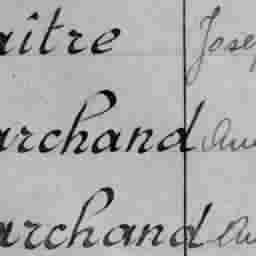 aître Jose
archand Au
archand Au